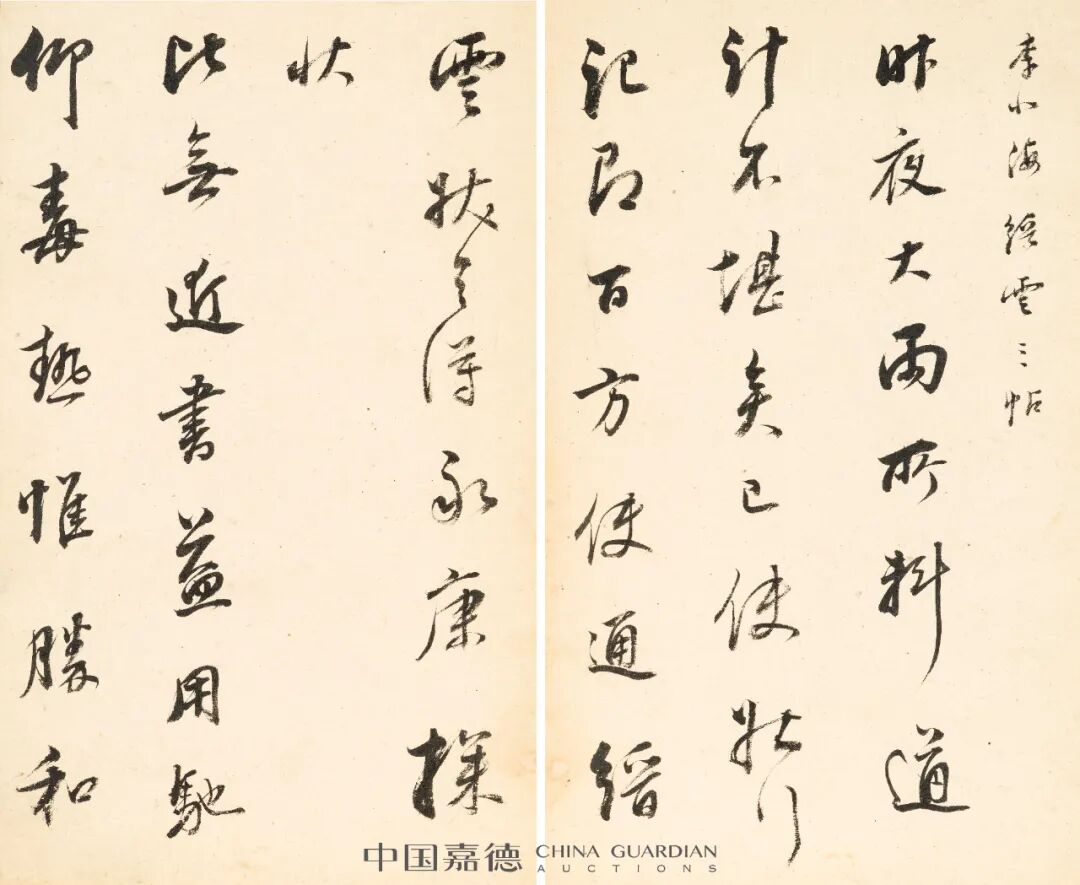 李北海縉雲三帖
昨夜大雨所料道
計不堪矣已使狀行
記即百方使通縉
雲狀之得永康採
狀
比無近書益用馳
仰毒熱惟勝和
中国嘉德 CHINA GUARDIAN
AUCTIONS